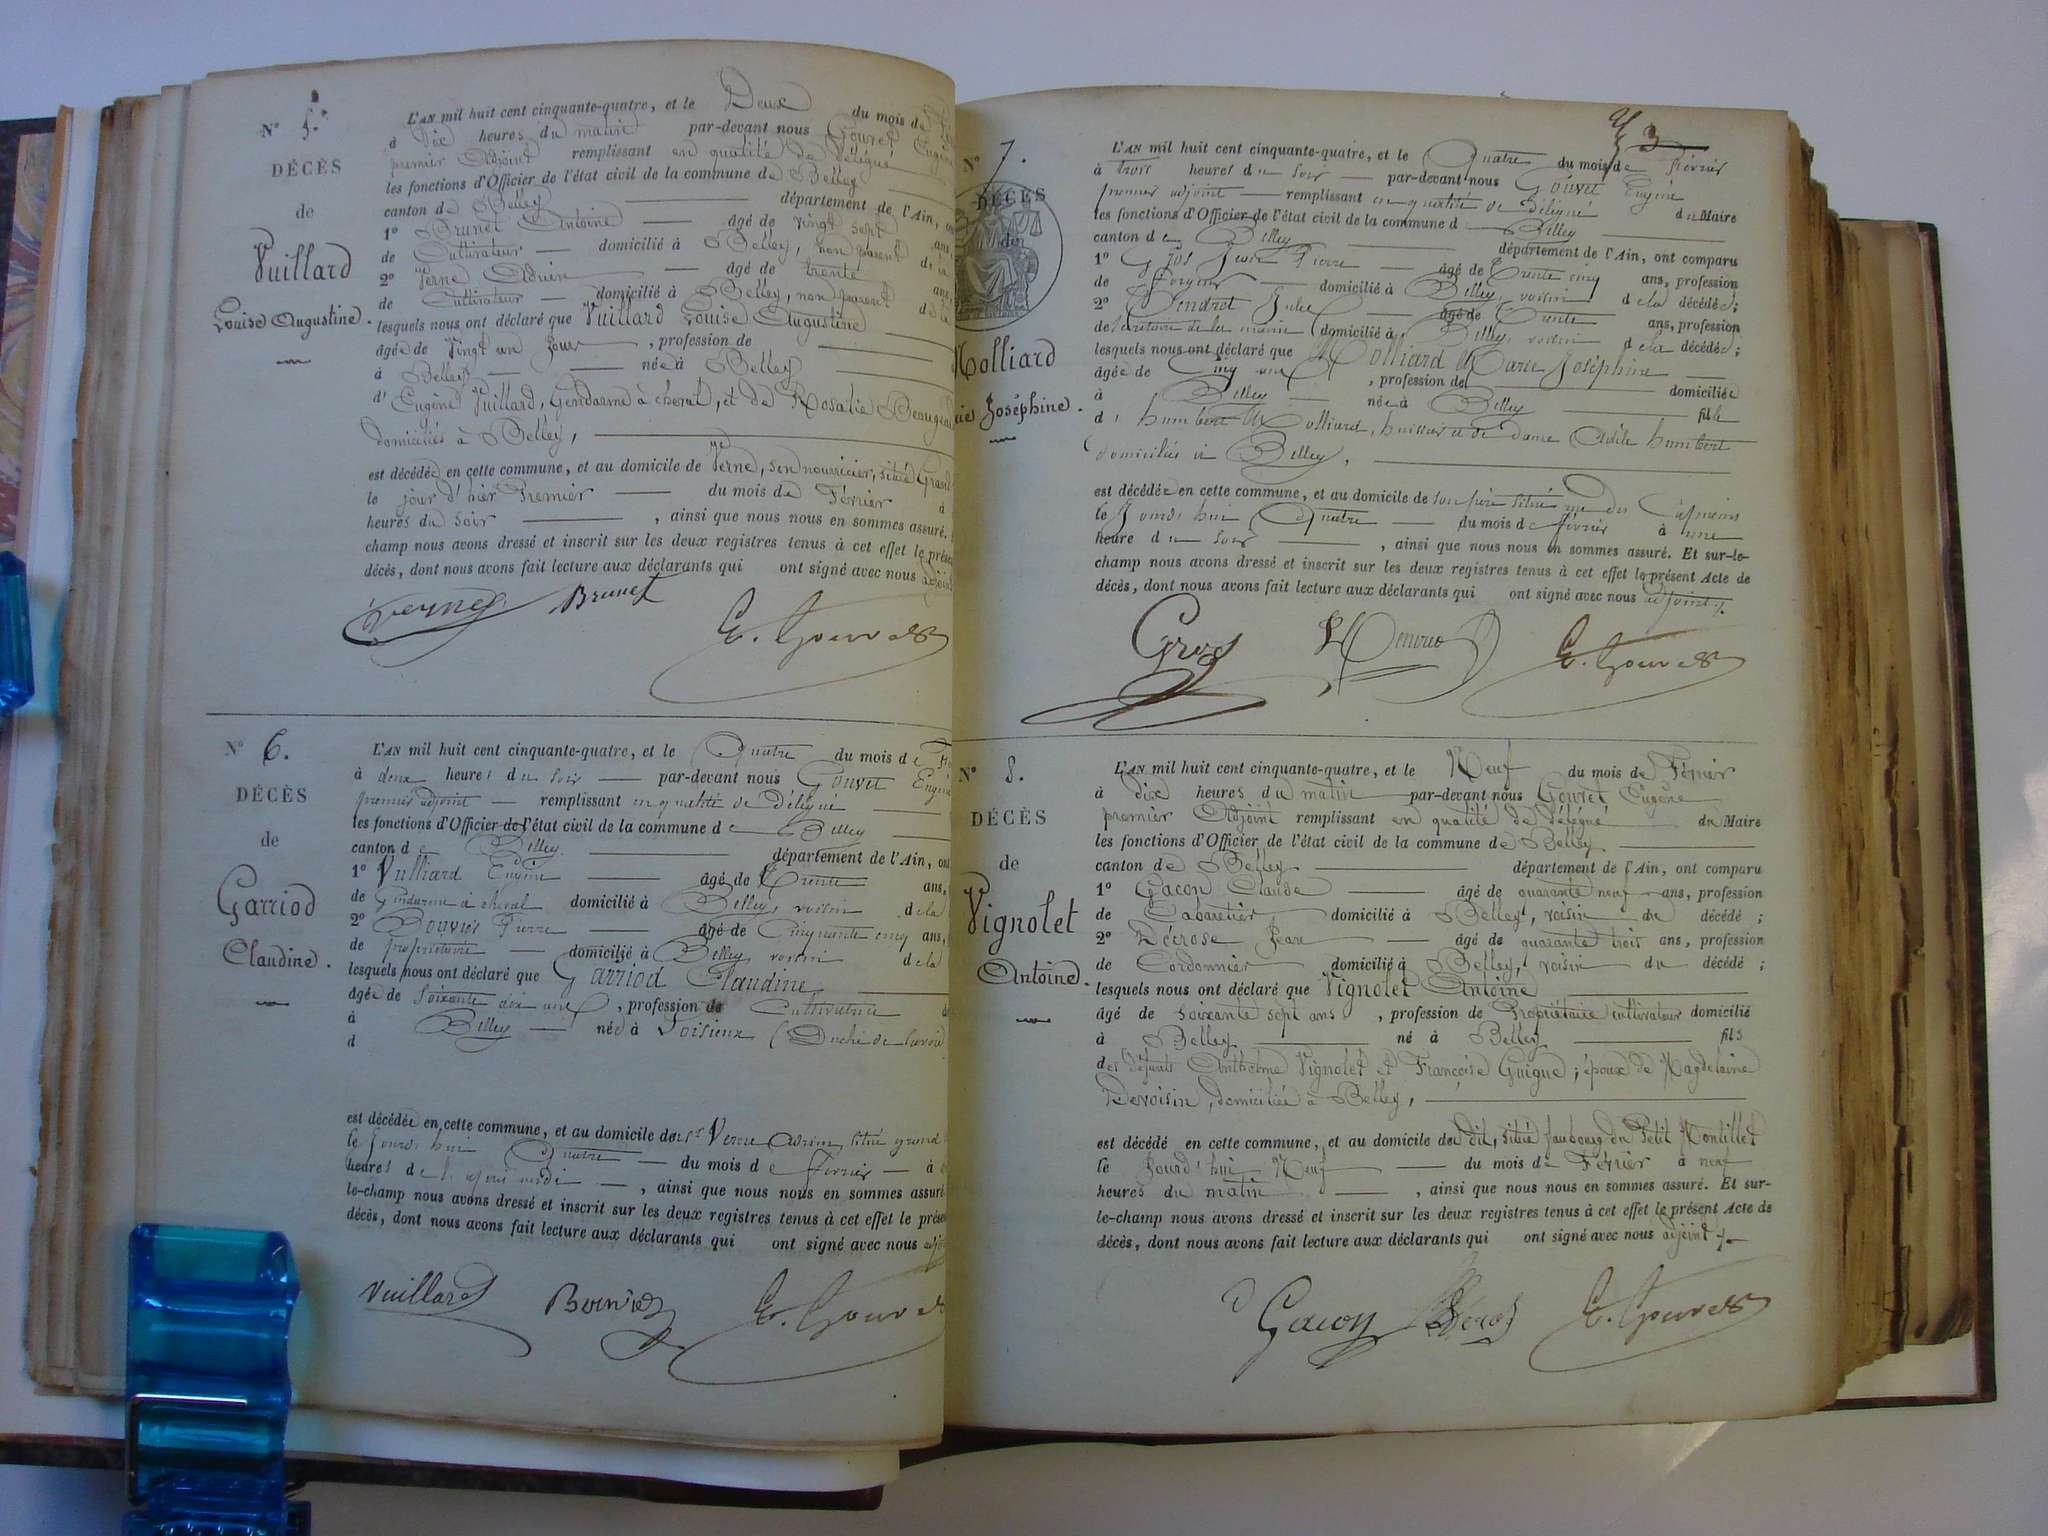 N° 5.
DÉCÈS
de
Vuillard
Louise Augustine.
L'AN mil huit cent cinquante-quatre, et le Deux du mois de
à dix heures du matin par-devant nous Gouvet Eugène
premier Adjoint remplissant en qualité de Délégué
les fonctions d'Officier de l'état civil de la commune de Belley
canton de Belley département de l'Ain,
1° Brunet Antoine âgé de vingt sept ans,
de Cultivateur domicilié à Belley, non parent de la
2° Verne Aduin âgé de trente ans,
de Cultivateur domicilié à Belley, non parent de la
lesquels nous ont déclaré que Vuillard Louise Augustine
âgée de Vingt un jours , profession de
à Belley née à Belley
d' Eugène Vuillard, Gendarme à cheval, et de Rosalie
domiciliés à Belley,
est décédée en cette commune, et au domicile de Verne, son nourricier, situé Grand
le jour d'hier Premier du mois de Février à
heures du soir , ainsi que nous nous en sommes assuré.
champ nous avons dressé et inscrit sur les deux registres tenus à cet effet le
décès, dont nous avons fait lecture aux déclarants qui ont signé avec nous adjoint
Verne Brunet
E. Gouvet
N° 6.
DÉCÈS
de
Garriod
Claudine.
L'AN mil huit cent cinquante-quatre, et le Quatre du mois de
à deux heures du soir par-devant nous Gouvet Eugène
premier adjoint remplissant en qualité de Délégué
les fonctions d'Officier de l'état civil de la commune de Belley
canton de Belley département de l'Ain, ont
1° Vulliard Eugène âgé de Trente ans,
de Gendarme à cheval domicilié à Belley, voisin de la
2° Bouvier Pierre âgé de Cinquante cinq ans,
de propriétaire domicilié à Belley voisin de la
lesquels nous ont déclaré que Garriod Claudine
âgée de soixante dix ans , profession de Cultivatrice
à Belley née à Loisieux (Duché de Savoie)
d
est décédée en cette commune, et au domicile du Sr Verne situé grand
le Jourd'hui Quatre du mois de février à
heures de l'après midi , ainsi que nous nous en sommes assuré.
le-champ nous avons dressé et inscrit sur les deux registres tenus à cet effet le
décès, dont nous avons fait lecture aux déclarants qui ont signé avec nous
Vuillard Bouvier E. Gouvet
3
N° 7.
DÉCÈS
de
Molliard
Joséphine.
L'AN mil huit cent cinquante-quatre, et le Quatre du mois de Février
à trois heures du soir par-devant nous Gouvet Eugène
premier adjoint remplissant en qualité de Délégué du Maire
les fonctions d'Officier de l'état civil de la commune d Belley
canton de Belley département de l'Ain, ont comparu
1° Gros Jean Pierre âgé de Trente cinq ans, profession
de domicilié à Belley, voisin de la décédée;
2° Jules âgé de Trente ans, profession
de Secrétaire de la mairie domicilié à Belley, voisin de la décédée;
lesquels nous ont déclaré que Molliard Marie Joséphine
âgée de Cinq ans , profession de domiciliée
à Belley née à Belley fille
d' humbert Molliard, huissier et de dame Adèle humbert
domiciliés à Belley,
est décédée en cette commune, et au domicile de son père situé rue des Capucins
le Jourd'hui Quatre du mois de février à une
heure du soir , ainsi que nous nous en sommes assuré. Et sur-le-
champ nous avons dressé et inscrit sur les deux registres tenus à cet effet le présent Acte de
décès, dont nous avons fait lecture aux déclarants qui ont signé avec nous adjoint.
Gros E. Gouvet
N° 8.
DÉCÈS
de
Vignolet
Antoine.
L'AN mil huit cent cinquante-quatre, et le Neuf du mois de Février
à dix heures du matin par-devant nous Gouvet Eugène
premier Adjoint remplissant en qualité de Délégué du Maire
les fonctions d'Officier de l'état civil de la commune de Belley
canton de Belley département de l'Ain, ont comparu
1° Gacon Claude âgé de quarante neuf ans, profession
de Cabaretier domicilié à Belley, voisin du décédé;
2° Décrose Jean âgé de quarante trois ans, profession
de Cordonnier domicilié à Belley, voisin du décédé;
lesquels nous ont déclaré que Vignolet Antoine
âgé de soixante sept ans , profession de Propriétaire cultivateur domicilié
à Belley né à Belley fils
des défunts Anthelme Vignolet et Françoise Guigue; époux de Magdelaine
Devoisin, domiciliée à Belley,
est décédé en cette commune, et au domicile du dit, situé faubourg du Petit Montillet
le Jourd'hui Neuf du mois de Février à neuf
heures du matin , ainsi que nous nous en sommes assuré. Et sur-
le-champ nous avons dressé et inscrit sur les deux registres tenus à cet effet le présent Acte de
décès, dont nous avons fait lecture aux déclarants qui ont signé avec nous adjoint
Gacon E. Gouvet